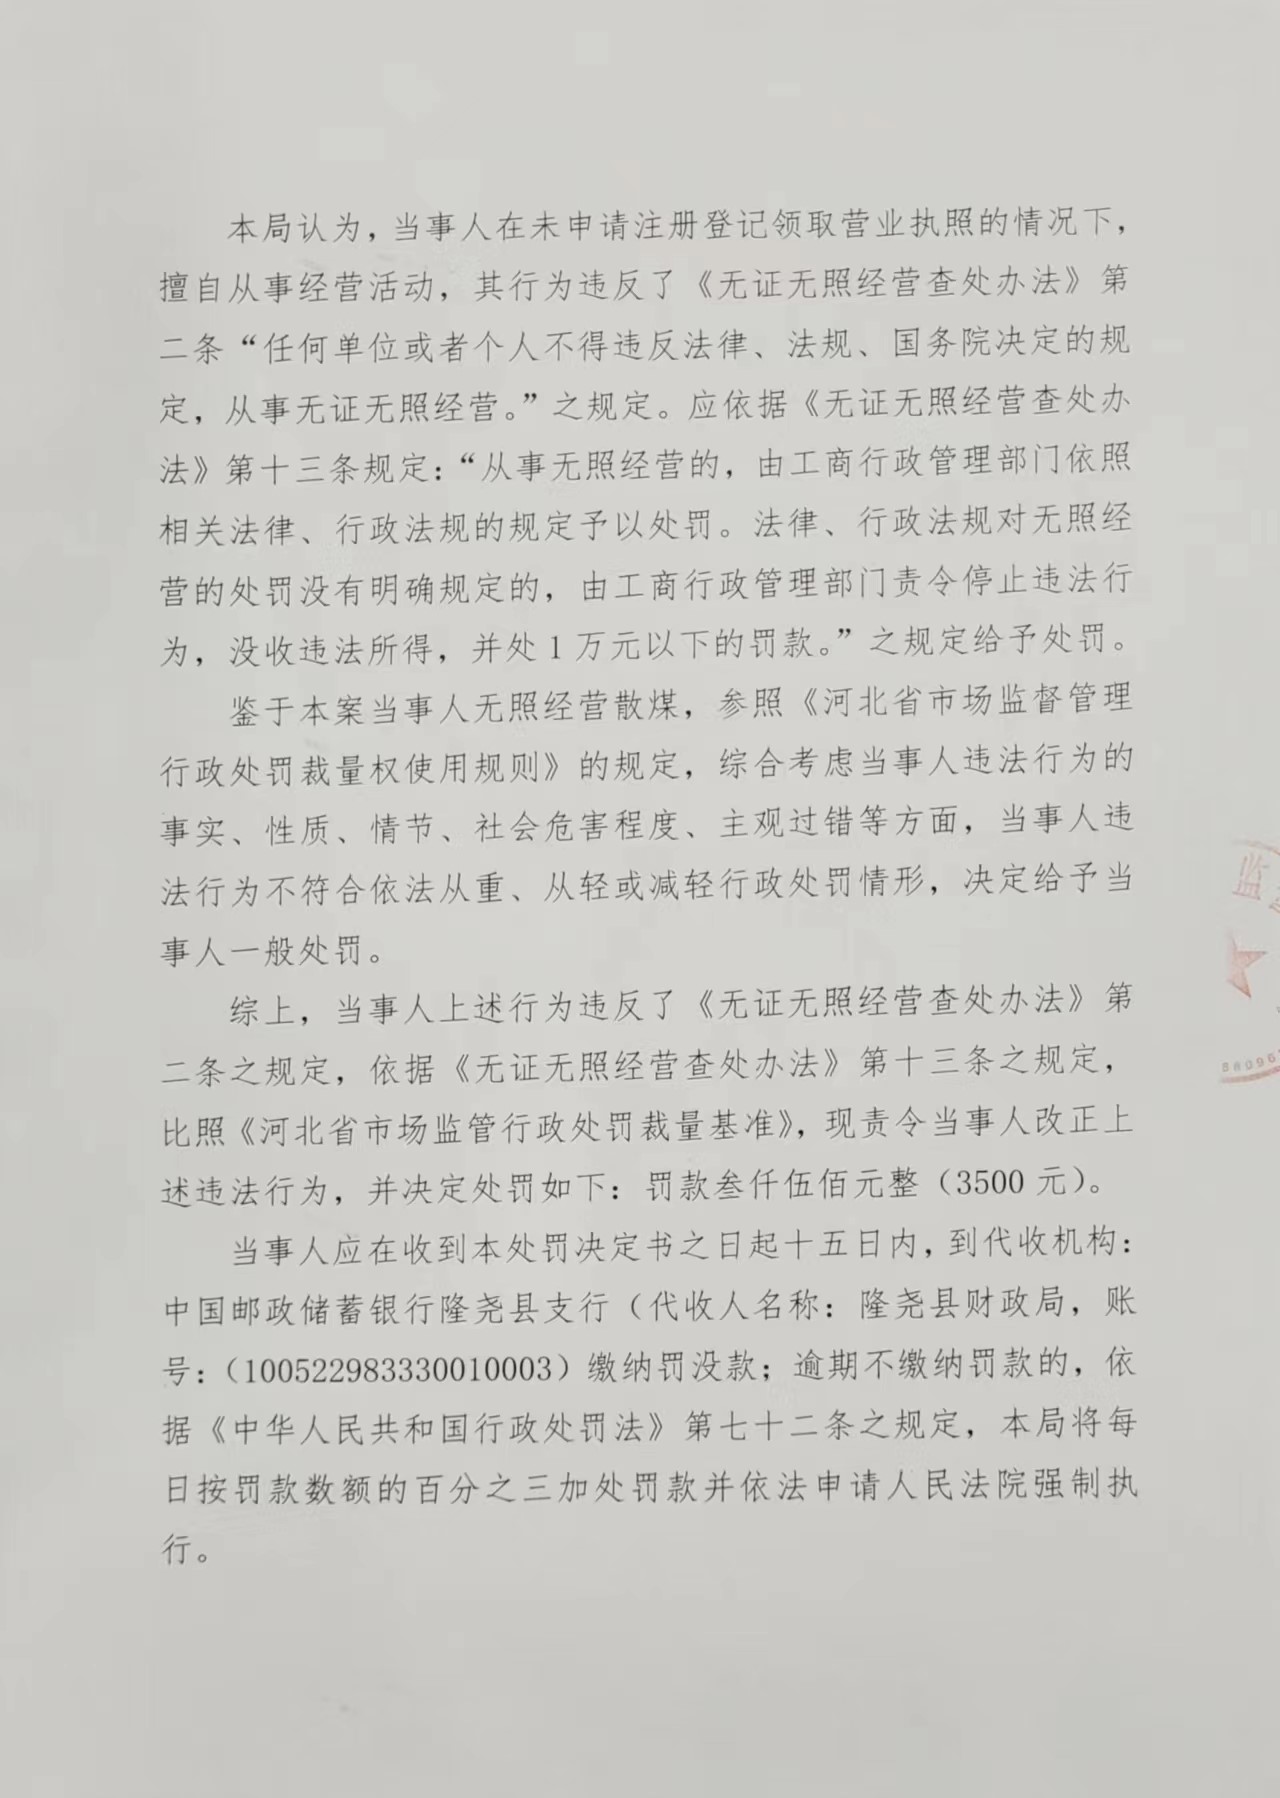 本局认为，当事人在未申请注册登记领取营业执照的情况下，
擅自从事经营活动，其行为违反了《无证无照经营查处办法》第
二条“任何单位或者个人不得违反法律、法规、国务院决定的规
定，从事无证无照经营。”之规定。应依据《无证无照经营查处办
法》第十三条规定：“从事无照经营的，由工商行政管理部门依照
相关法律、行政法规的规定予以处罚。法律、行政法规对无照经
营的处罚没有明确规定的，由工商行政管理部门责令停止违法行
为，没收违法所得，并处1万元以下的罚款。”之规定给予处罚。
鉴于本案当事人无照经营散煤，参照《河北省市场监督管理
行政处罚裁量权使用规则》的规定，综合考虑当事人违法行为的
事实、性质、情节、社会危害程度、主观过错等方面，当事人违
法行为不符合依法从重、从轻或减轻行政处罚情形，决定给予当
事人一般处罚。
综上，当事人上述行为违反了《无证无照经营查处办法》第
二条之规定，依据《无证无照经营查处办法》第十三条之规定，
比照《河北省市场监管行政处罚裁量基准》，现责令当事人改正上
述违法行为，并决定处罚如下：罚款叁仟伍佰元整（3500元）。
当事人应在收到本处罚决定书之日起十五日内，到代收机构：
中国邮政储蓄银行隆尧县支行（代收人名称：隆尧县财政局，账
号：（100522983330010003）缴纳罚没款；逾期不缴纳罚款的，依
据《中华人民共和国行政处罚法》第七十二条之规定，本局将每
日按罚款数额的百分之三加处罚款并依法申请人民法院强制执
行。
监